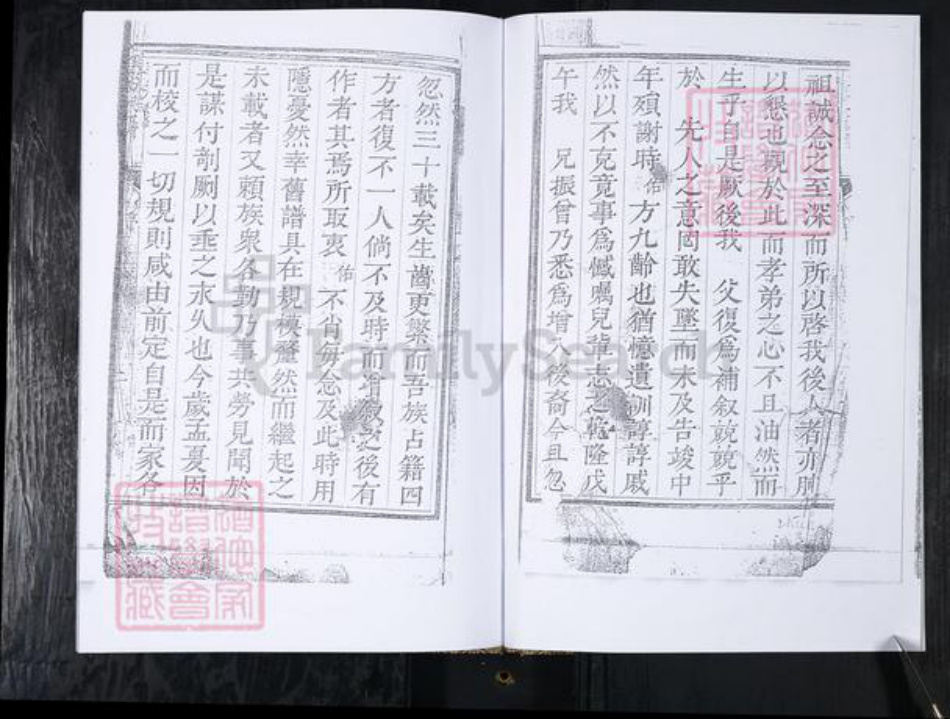 祖誠念之至深而所以啓我後人者亦肫
以懇也觀於此而孝弟之心不且油然而
生乎自是厥後我　父復爲補叙兢兢乎
於　先人之意罔敢失墜而未及告竣中
年殞謝時佑方九齡也猶憶遺訓諄諄戚
然以不克竟事爲憾囑兒輩志之乾隆戊
午我　兄振曾乃悉爲增入後裔今且忽
忽然三十載矣生齒更繁而吾族占籍四
方者復不一人倘不及時而增叙之後有
作者其焉所取衷佑不肖每念及此時用
隱憂然幸舊譜具在規模釐然而繼起之
未載者又頼族衆各勤乃事共勞見聞於
是謀付剞劂以垂之永久也今歲孟夏因
而校之一切規則咸由前定自是而家各
FamilySearch